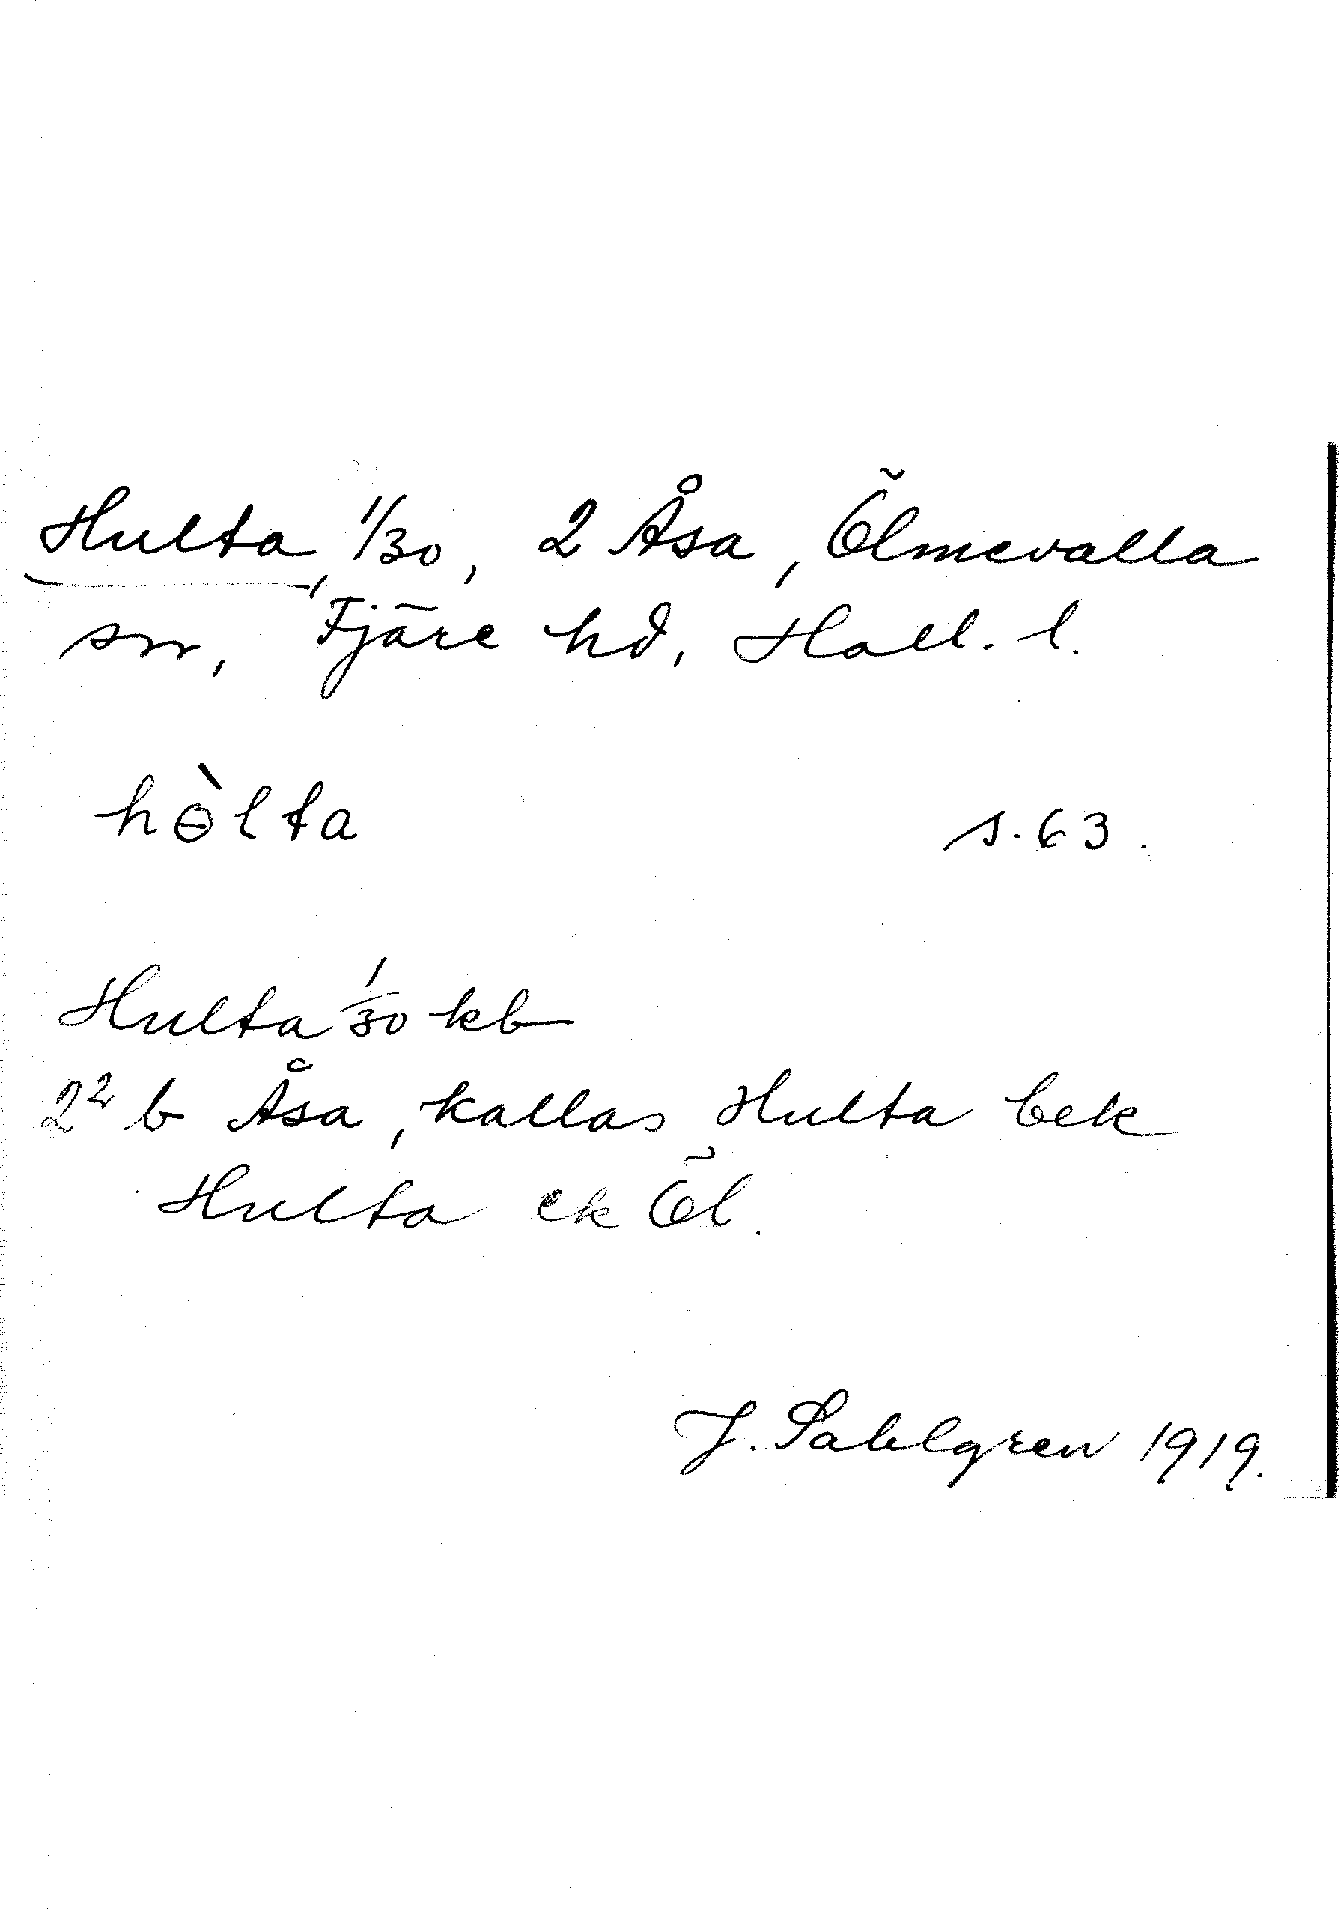 Hulta, 1/30, 2 Åsa, Ölmevalla
sn, Fjäre hd, Hall. l.
hɵ̀lta s. 63.
Hulta 1/30 kb
2² b Åsa, kallas Hulta bek
Hulta ek Öl.
J. Sahlgren 1919.